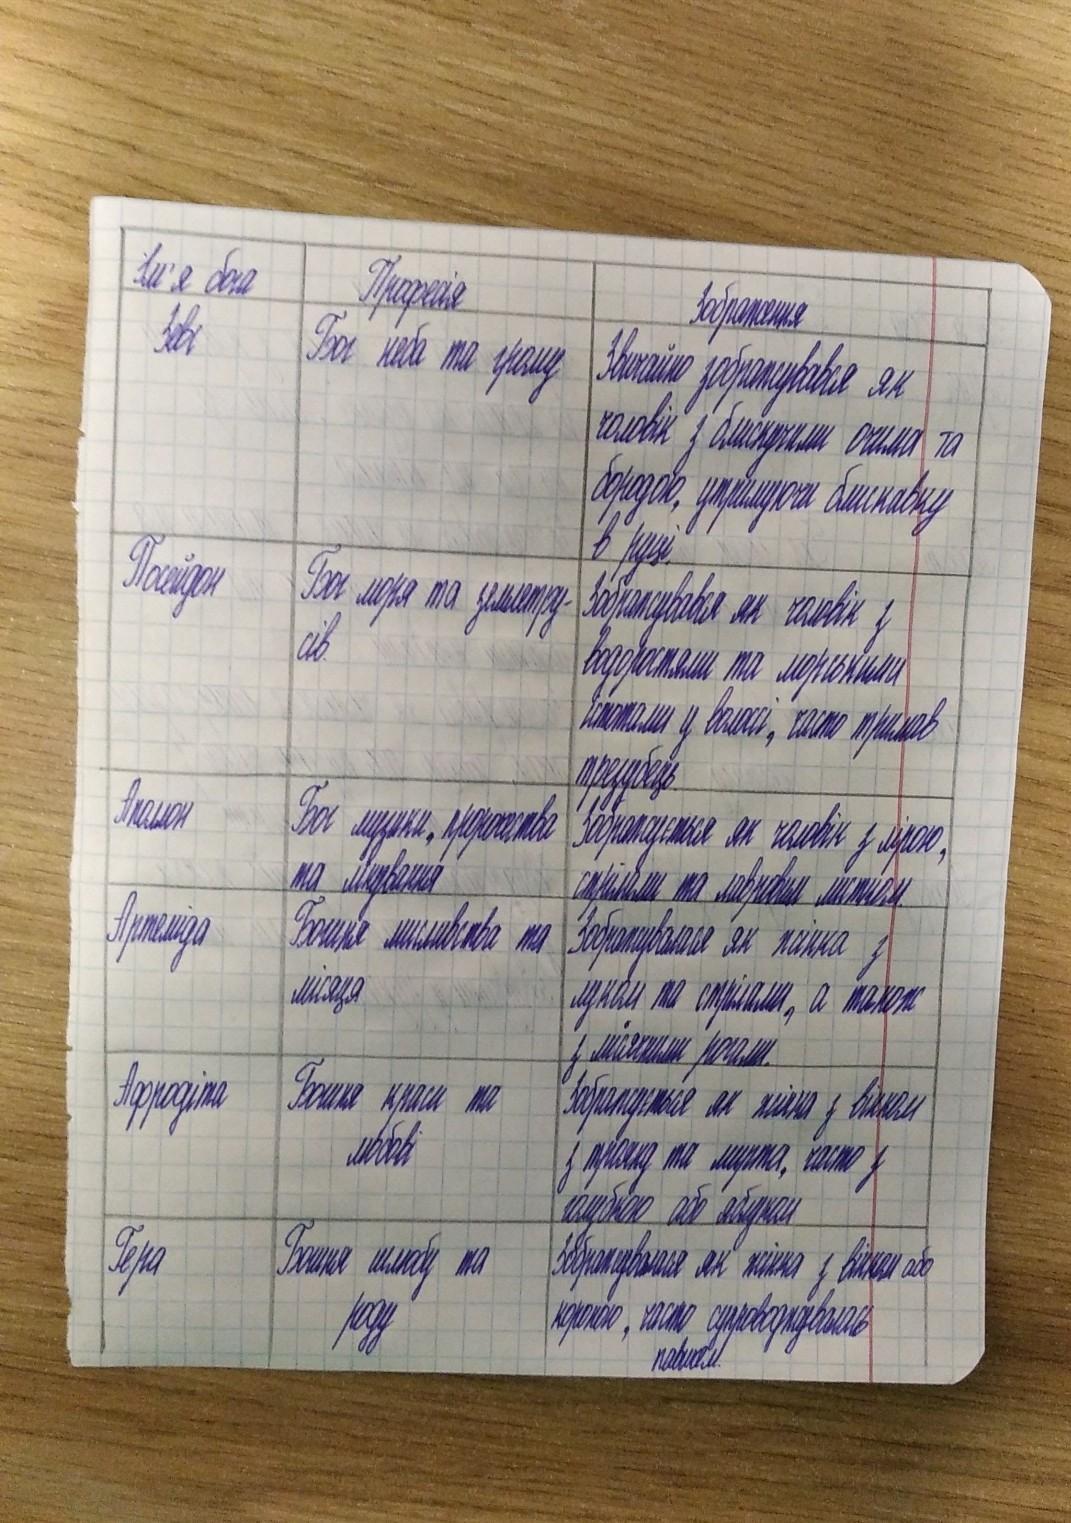 Ім'я бога Професія Зображення
Зевс Бог неба та грому Звичайно зображувався як
чоловік з блискучими очима та
бородою, утримуючи блискавку
в руці.
Посейдон Бог моря та землетру- Зображувався як чоловік з
сів. водоростями та морськими
істотами у волоссі, часто тримав
тризубець.
Аполлон Бог музики, пророчества Зображується як чоловік з лірою,
та лікування стрілами та лавровим листям.
Артеміда Богиня мисливства та Зображувалася як жінка з
місяця луком та стрілами, а також
з місячними рогами.
Афродіта Богиня краси та Зображується як жінка з вінком
любові з троянд та мирта, часто з
голубкою або яблуком
Гера Богиня шлюбу та Зображувалася як жінка з вінком або
роду короною, часто супроводжувалась
павичем.